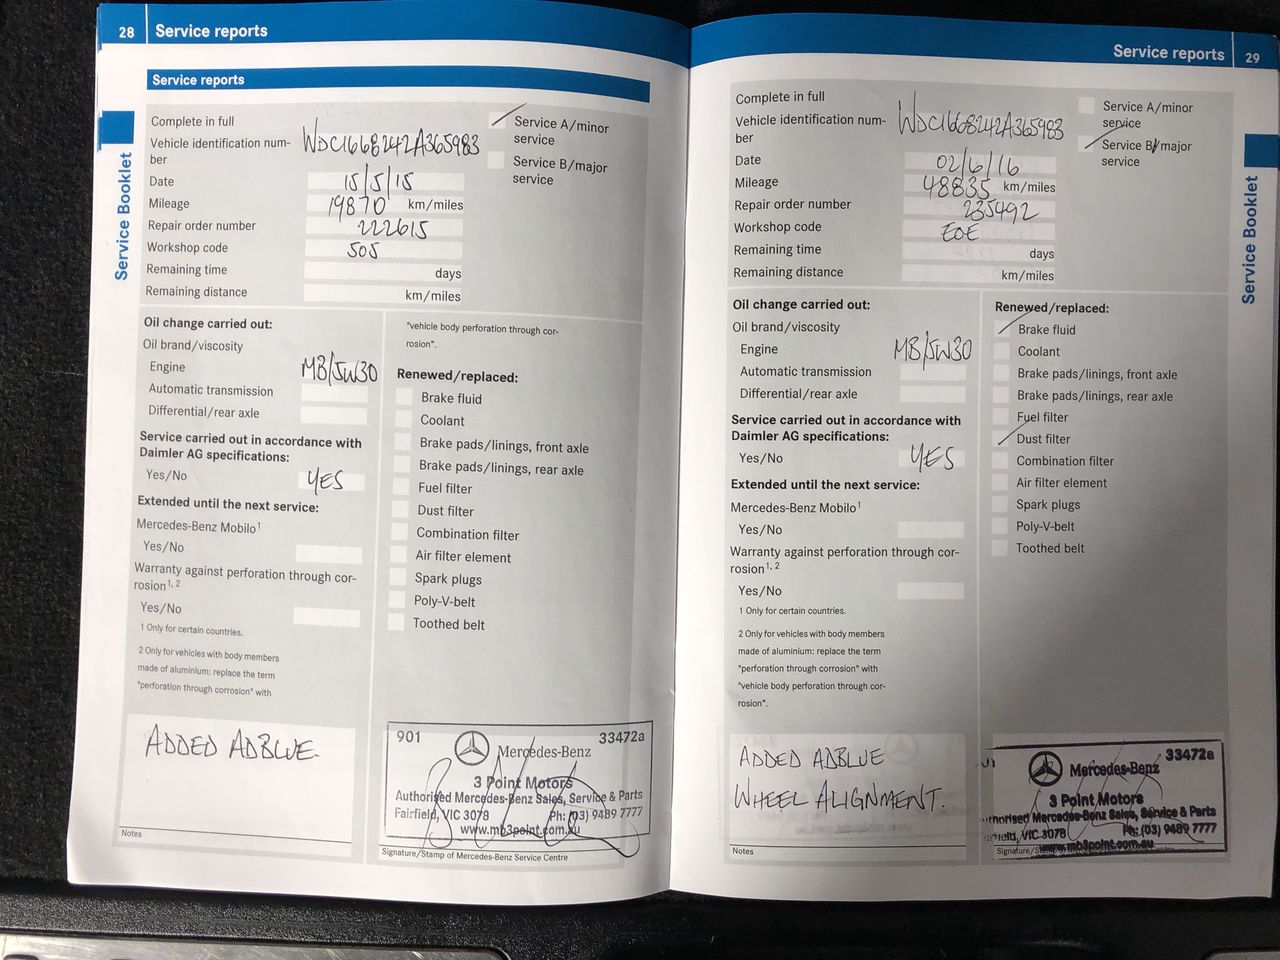 28 Service reports
Service reports
Service Booklet
Complete in full
Vehicle identification num-
ber WDC1668242A365983
Date 15/5/15
Mileage 19870 km/miles
Repair order number 222615
Workshop code 505
Remaining time days
Remaining distance km/miles
Service A/minor
service
Service B/major
service
Oil change carried out:
Oil brand/viscosity
Engine MB/5W30
Automatic transmission
Differential/rear axle
Service carried out in accordance with
Daimler AG specifications:
Yes/No YES
Extended until the next service:
Mercedes-Benz Mobilo¹
Yes/No
Warranty against perforation through cor-
rosion¹, ²
Yes/No
1 Only for certain countries.
2 Only for vehicles with body members
made of aluminium: replace the term
"perforation through corrosion" with
"vehicle body perforation through cor-
rosion".
Renewed/replaced:
Brake fluid
Coolant
Brake pads/linings, front axle
Brake pads/linings, rear axle
Fuel filter
Dust filter
Combination filter
Air filter element
Spark plugs
Poly-V-belt
Toothed belt
ADDED ADBLUE.
Notes
901 33472a
Mercedes-Benz
3 Point Motors
Authorised Mercedes-Benz Sales, Service & Parts
Fairfield, VIC 3078 Ph: (03) 9489 7777
www.mb3point.com.au
Signature/Stamp of Mercedes-Benz Service Centre
Service reports 29
Service Booklet
Complete in full
Vehicle identification num-
ber WDC1668242A365983
Date 02/6/16
Mileage 48835 km/miles
Repair order number 235492
Workshop code EOE
Remaining time days
Remaining distance km/miles
Service A/minor
service
Service B/major
service
Oil change carried out:
Oil brand/viscosity
Engine MB/5W30
Automatic transmission
Differential/rear axle
Service carried out in accordance with
Daimler AG specifications:
Yes/No YES
Extended until the next service:
Mercedes-Benz Mobilo¹
Yes/No
Warranty against perforation through cor-
rosion¹, ²
Yes/No
1 Only for certain countries.
2 Only for vehicles with body members
made of aluminium: replace the term
"perforation through corrosion" with
"vehicle body perforation through cor-
rosion".
Renewed/replaced:
Brake fluid
Coolant
Brake pads/linings, front axle
Brake pads/linings, rear axle
Fuel filter
Dust filter
Combination filter
Air filter element
Spark plugs
Poly-V-belt
Toothed belt
ADDED ADBLUE
WHEEL ALIGNMENT.
Notes
33472a
Mercedes-Benz
3 Point Motors
thorised Mercedes-Benz Sales, Service & Parts
field, VIC 3078 Ph: (03) 9489 7777
www.mb3point.com.au
Signature/S